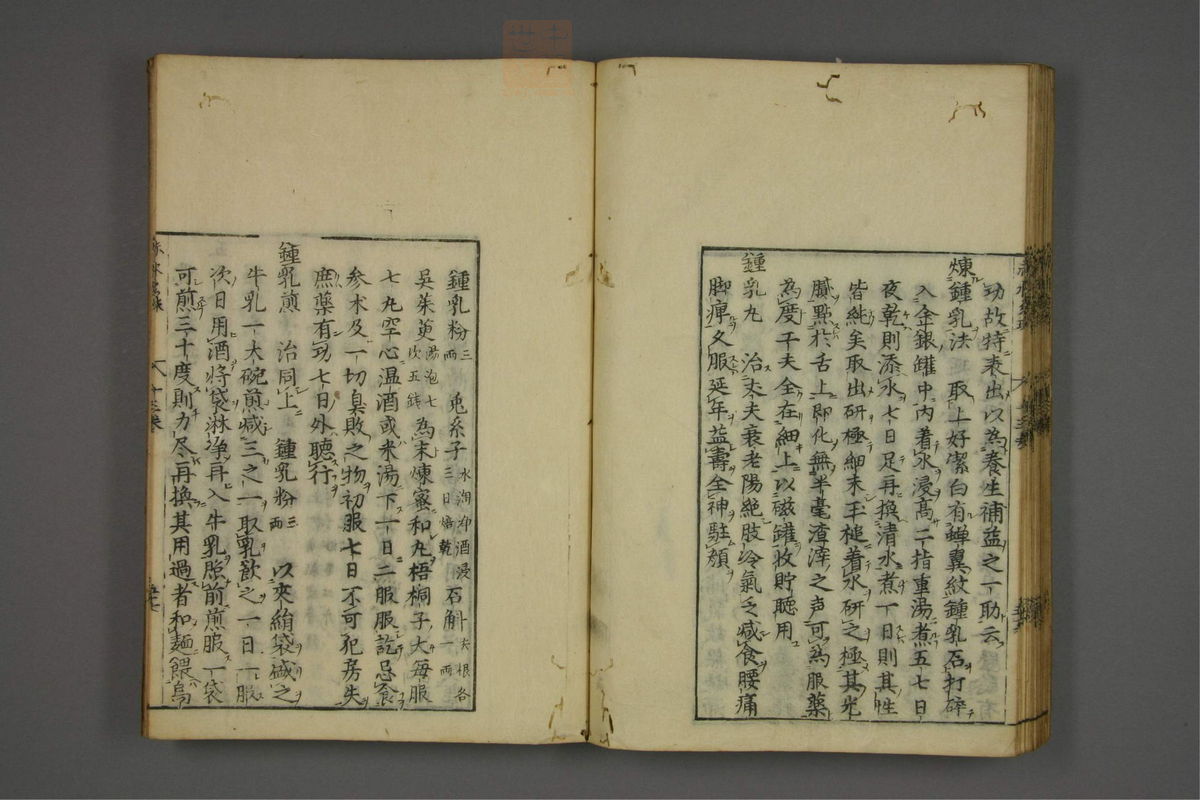 功故特表出以為養生補益之一助云
煉鍾乳法 取上好潔白有蟬翼紋鍾乳石打碎
入金銀罐中内着水浸高二指重湯煮五七日
夜乾則添水七日足再換清水煮一日則其性
皆純矣取出研極細末玉槌着水研之極其光
膩點於舌上即化無半毫渣滓之声可為服藥
為度干夫全在細上以磁罐收貯聴用
鍾乳丸 治太夫衰老陽絶肢冷氣乏减食腰痛
脚痺久服延年益壽全神駐顔
鍾乳粉三兩 兎糸子水淘净酒浸三日焙乾 石斛一兩去根各
吳茱萸湯泡七次五錢 為末煉蜜和丸梧桐子大每服
七丸空心温酒或米湯下一日二服服訖忌食
参术及一切臭敗之物初服七日不可犯房失
庶藥有功七日外聴行
鍾乳煎 治同上 鍾乳粉三兩 以夾絹袋盛之
牛乳一大碗煎减三之一取乳飲之一日一服
次日用酒将袋淋净再入牛乳照前煎服一袋
可煎三十度則力尽再換其用過者和麺餵烏